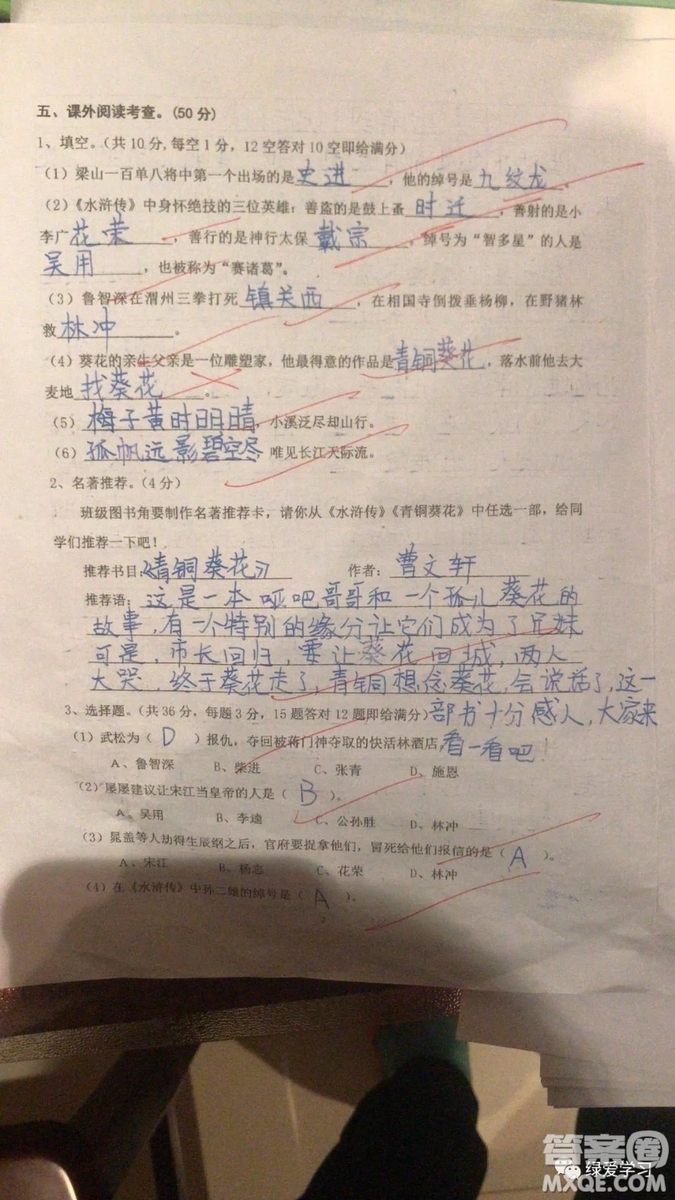 五、课外阅读考查。(50分)
1、填空。（共10分,每空1分，12空答对10空即给满分）
（1）梁山一百单八将中第一个出场的是 史进 ，他的绰号是 九纹龙 。
（2）《水浒传》中身怀绝技的三位英雄：善盗的是鼓上蚤 时迁 ，善射的是小
李广 花荣 ，善行的是神行太保 戴宗 ，绰号为“智多星”的人是
吴用 ，也被称为“赛诸葛”。
（3）鲁智深在渭州三拳打死 镇关西 ，在相国寺倒拨垂杨柳，在野猪林
救 林冲 。
（4）葵花的亲生父亲是一位雕塑家，他最得意的作品是 青铜葵花 ，落水前他去大
麦地 找葵花 。
（5） 梅子黄时日日晴 ，小溪泛尽却山行。
（6） 孤帆远影碧空尽 唯见长江天际流。
2、名著推荐。（4分）
班级图书角要制作名著推荐卡，请你从《水浒传》《青铜葵花》中任选一部，给同
学们推荐一下吧！
推荐书目：《青铜葵花》 作者： 曹文轩
推荐语：这是一本哑吧哥哥和一个孤儿葵花的
故事，有一个特别的缘分让它们成为了兄妹
可是，市长回归，要让葵花回城，两人
大哭，终于葵花走了，青铜想念葵花，会说话了，这一
3、选择题。（共36分，每题3分，15题答对12题即给满分）部书十分感人，大家来
（1）武松为（ D ）报仇，夺回被蒋门神夺取的快活林酒店。看一看吧！
A、鲁智深 B、柴进 C、张青 D、施恩
（2）屡屡建议让宋江当皇帝的人是（ B ）。
A、吴用 B、李逵 C、公孙胜 D、林冲
（3）晁盖等人劫得生辰纲之后，官府要捉拿他们，冒死给他们报信的是（ A ）。
A、宋江 B、杨志 C、花荣 D、林冲
（4）在《水浒传》中孙二娘的绰号是（ A ）。
答案圈
绿爱学习
MXQE.COM